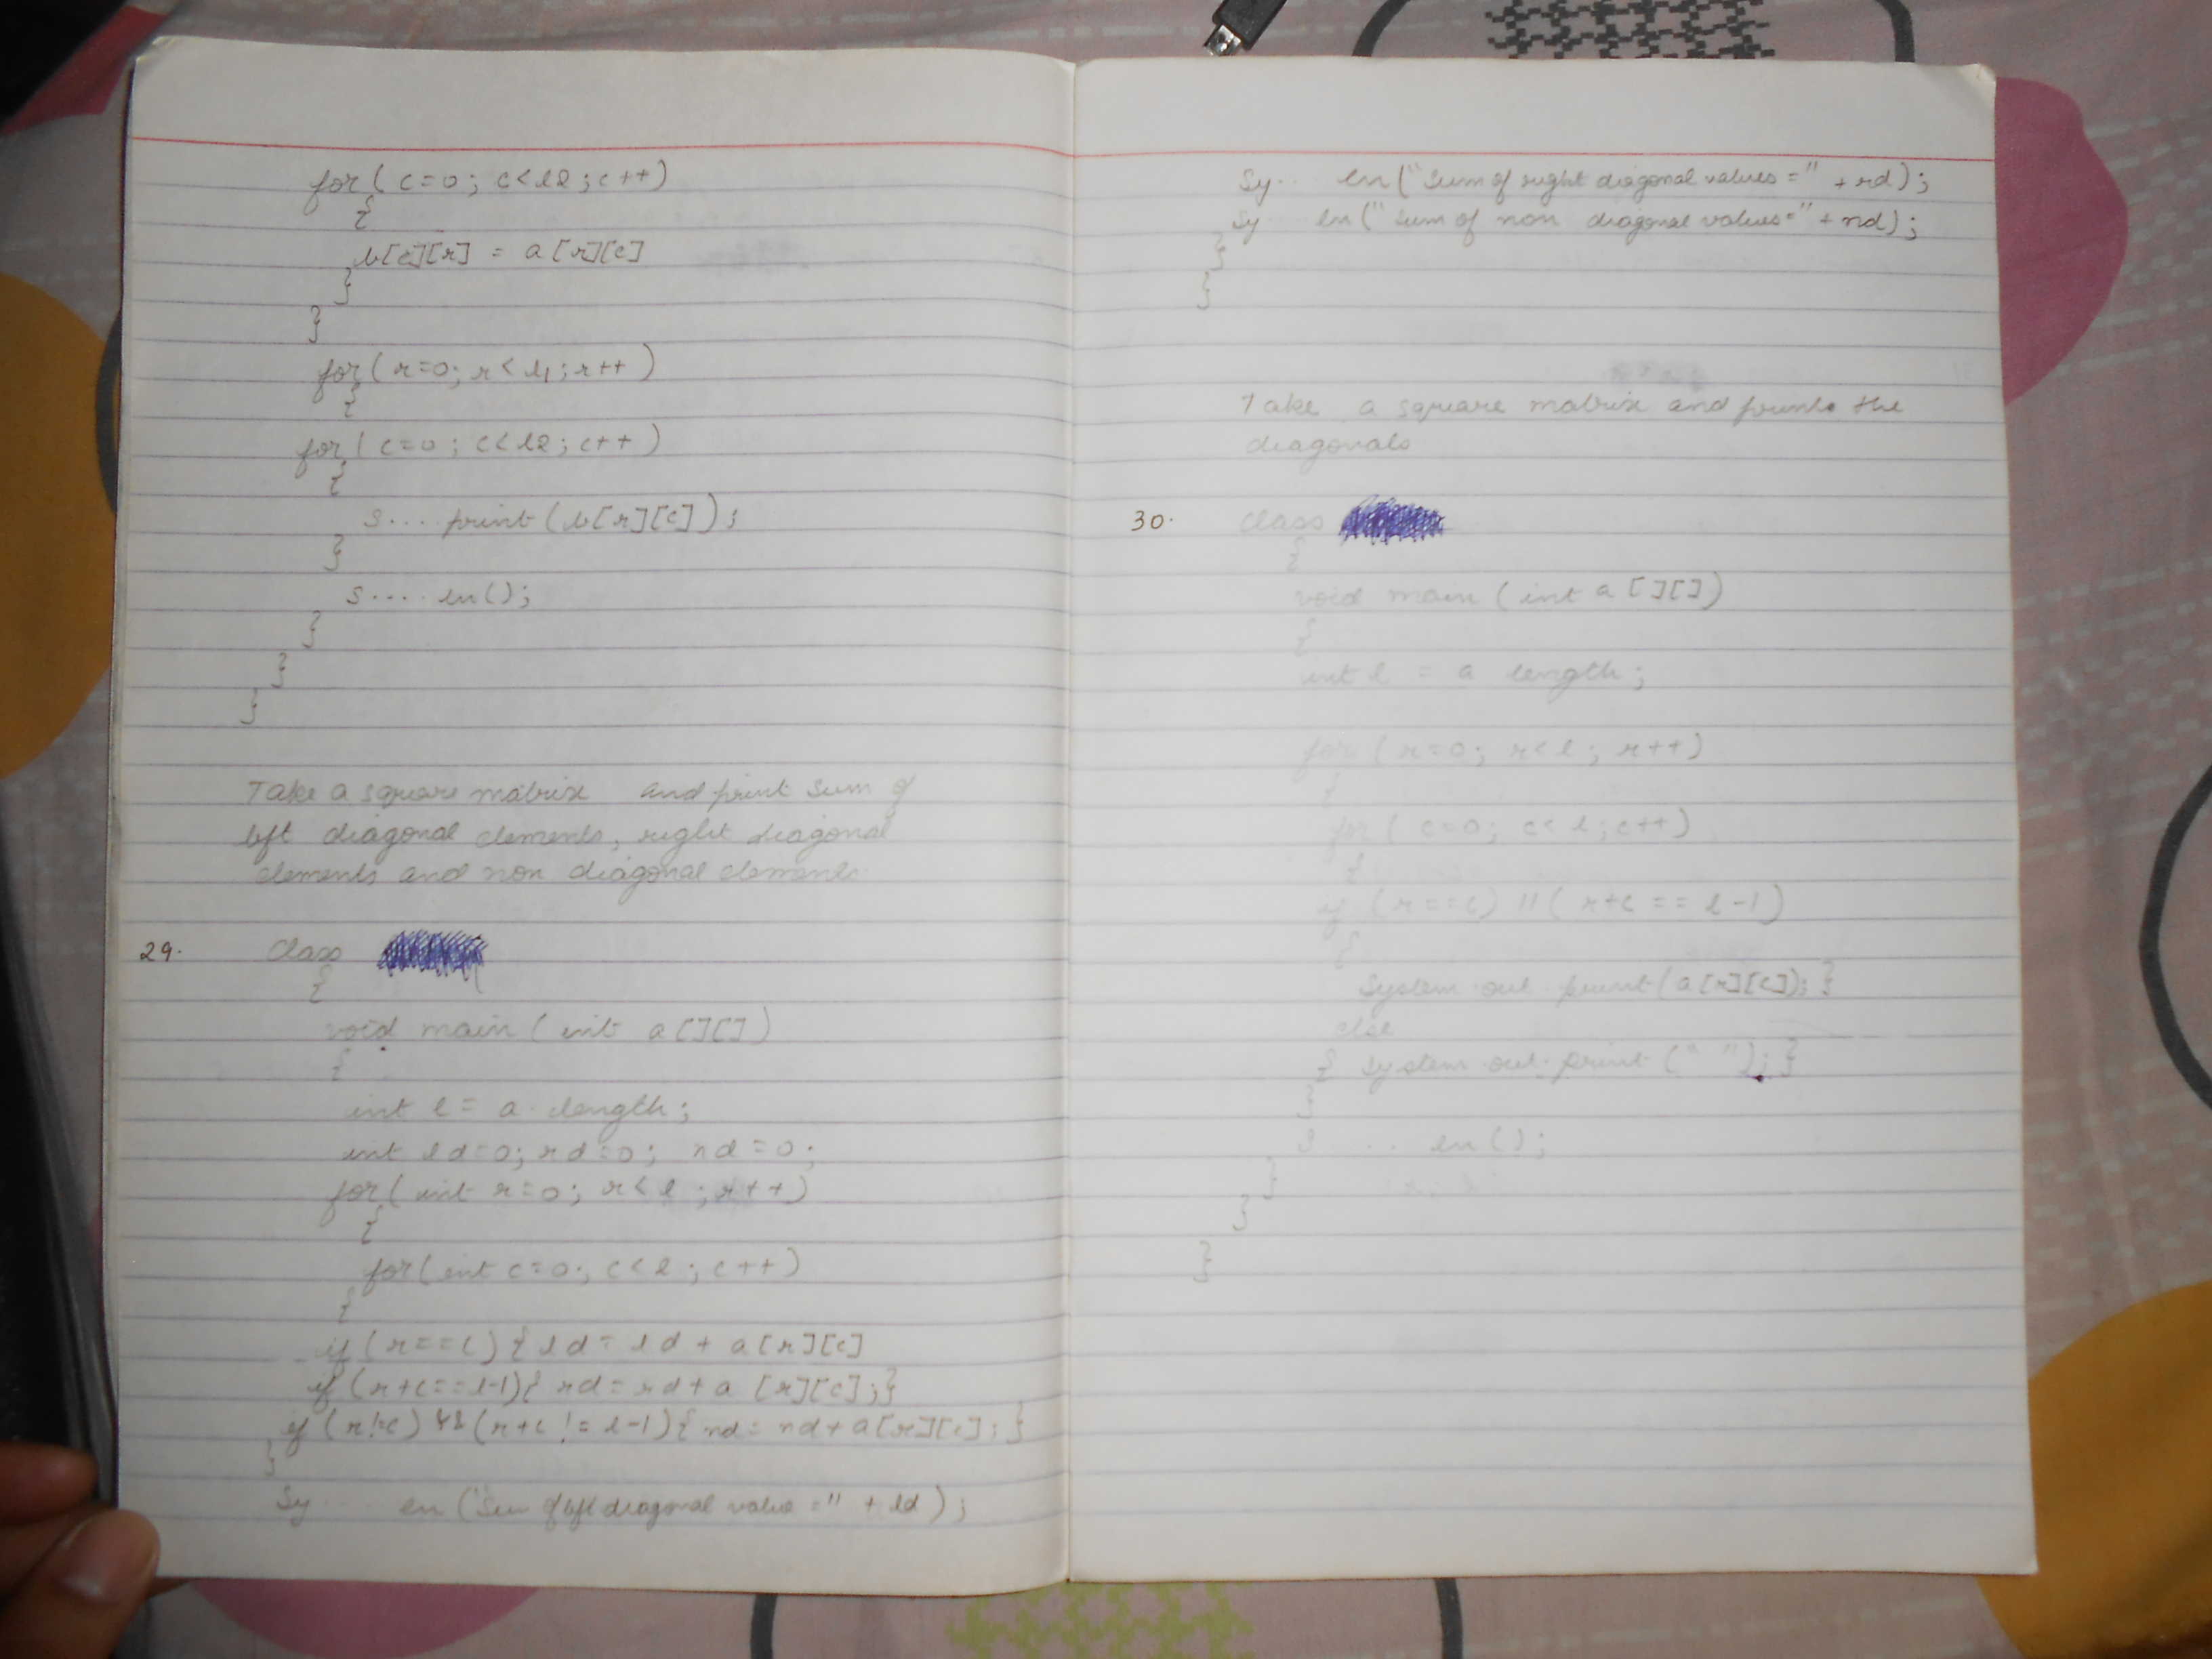 for( c=0; c<l2; c++)
{
b[c][r] = a[r][c]
}
}
for( r=0; r<l1; r++)
{
for( c=0; c<l2; c++)
{
s.... print(b[r][c]);
}
s.... ln();
}
}
}
Take a square matrix and print sum of
left diagonal elements, right diagonal
elements and non diagonal elements
29. Class
{
void main( int a[][])
{
int l= a.length;
int ld=0; rd=0; nd=0;
for( int r=0; r<l; r++)
{
for(int c=0; c<l; c++)
{
if(r==c){ ld= ld + a[r][c]
if (r+c==l-1){ rd=rd+a [r][c];}
if (r!=c) &&(r+c != l-1){ nd= nd+a[r][c];}
}
Sy.... ln("Sum of left diagonal value =" + ld);
Sy... ln("Sum of right diagonal values=" + rd);
Sy... ln("Sum of non diagonal values="+ nd);
}
}
Take a square matrix and print the
diagonals
30. class
{
void main (int a[][])
{
int l = a length;
for (r=0; r<l; r++)
{
for( c=0; c<l; c++)
{
if (r==c) ||( r+c == l-1)
{
System.out.print(a[r][c]); }
else
{ System.out.print (" "); }
}
s.... ln();
}
}
}